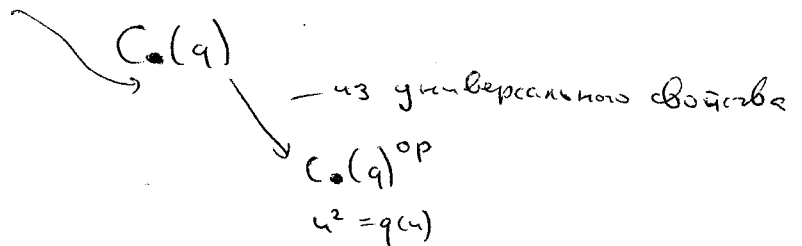 C.(q)
— из универсального свойства
C.(q)^op
u² = q(u)